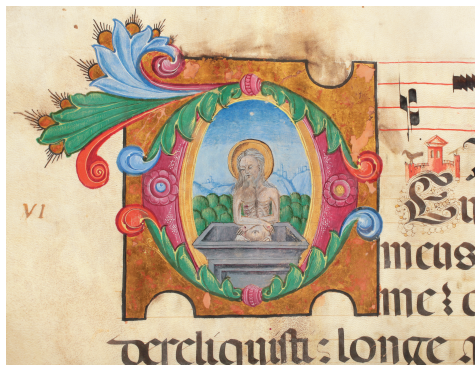 VI
Eu
meus
me
dereliquisti: longe